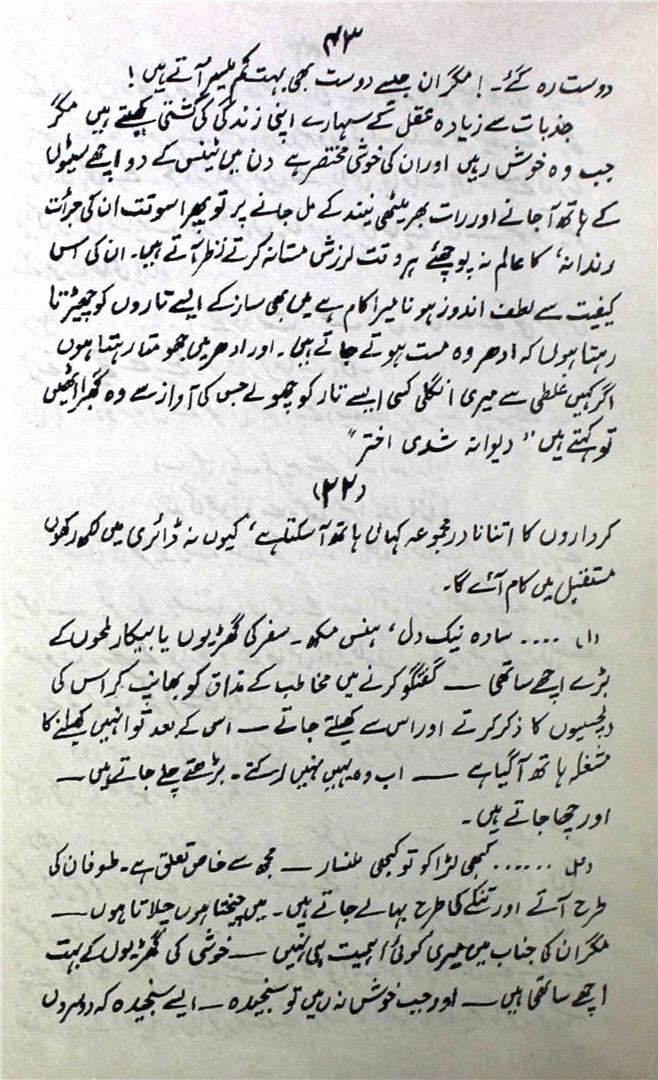 ۴۳
دوست رہ گئے۔! مگر ان جیسے دوست بھی بہت کم میسر آتے ہیں!
جذبات سے زیادہ عقل کے سہارے اپنی زندگی کی کشتی کھیتے ہیں مگر
جب وہ خوش رہیں اور ان کی خوشی مختصر ہے دن میں ٹینس کے دو اچھے سیٹوں
کے ہاتھ آجانے اور رات بھر میٹھی نیند کے مل جانے پر تو پھر اسوقت ان کی جرأت
رندانہ، کا عالم نہ پوچھئے ہر وقت لرزش مستانہ کرتے نظر آتے ہیں۔ ان کی اس
کیفیت سے لطف اندوز ہونا میرا کام ہے میں بھی ساز کے ایسے تاروں کو چھیڑتا
رہتا ہوں کہ ادھر وہ مست ہوتے جاتے ہیں۔ اور ادھر میں جھومتا رہتا ہوں
اگر کہیں غلطی سے میری انگلی کسی ایسے تار کو چھولے جس کی آواز سے وہ گھبرا اٹھیں
تو کہتے ہیں "دیوانہ شدی اختر"
(۲۲)
کرداروں کا اتنا نادر مجموعہ کہاں ہاتھ آ سکتا ہے، کیوں نہ ڈائری میں لکھ رکھوں
مستقبل میں کام آئے گا۔
.... سادہ نیک دل، ہنس مکھ۔ سفر کی گھڑیوں یا بیکار لمحوں کے
بڑے اچھے ساتھی — گفتگو کرنے میں مخاطب کے مذاق کو بھانپ کر اس کی
دلچسپیوں کا ذکر کرتے اور اس سے کھیلتے جاتے — اس کے بعد تو انہیں کھیلنے کا
مشغلہ ہاتھ آگیا ہے — اب وہ یہیں نہیں رکتے۔ بڑھتے چلے جاتے ہیں —
اور چھا جاتے ہیں۔
...... کبھی لڑاکو تو کبھی ملنسار — مجھ سے خاص تعلق ہے۔ طوفان کی
طرح آتے اور تنکے کی طرح بہا لے جاتے ہیں۔ میں چیختا ہوں چلاتا ہوں —
مگر ان کی جناب میں میری کوئی اہمیت ہی نہیں — خوشی کی گھڑیوں کے بہت
اچھے ساتھی ہیں — اور جب خوش نہ رہیں تو سنجیدہ — ایسے سنجیدہ کہ دوسروں